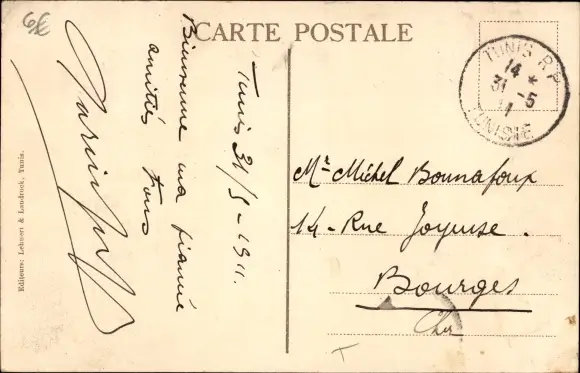 6€
CARTE POSTALE
TUNIS R.P.
14 *
31 -5
11
TUNISIE
Tunis 31/5-1911.
Bienvenue ma fiancée
amitiés à tous
Mr Michel Bonnafoux
14-Rue Joyeuse.
Bourges
Cher
T
Editeurs: Lehnert & Landrock, Tunis.